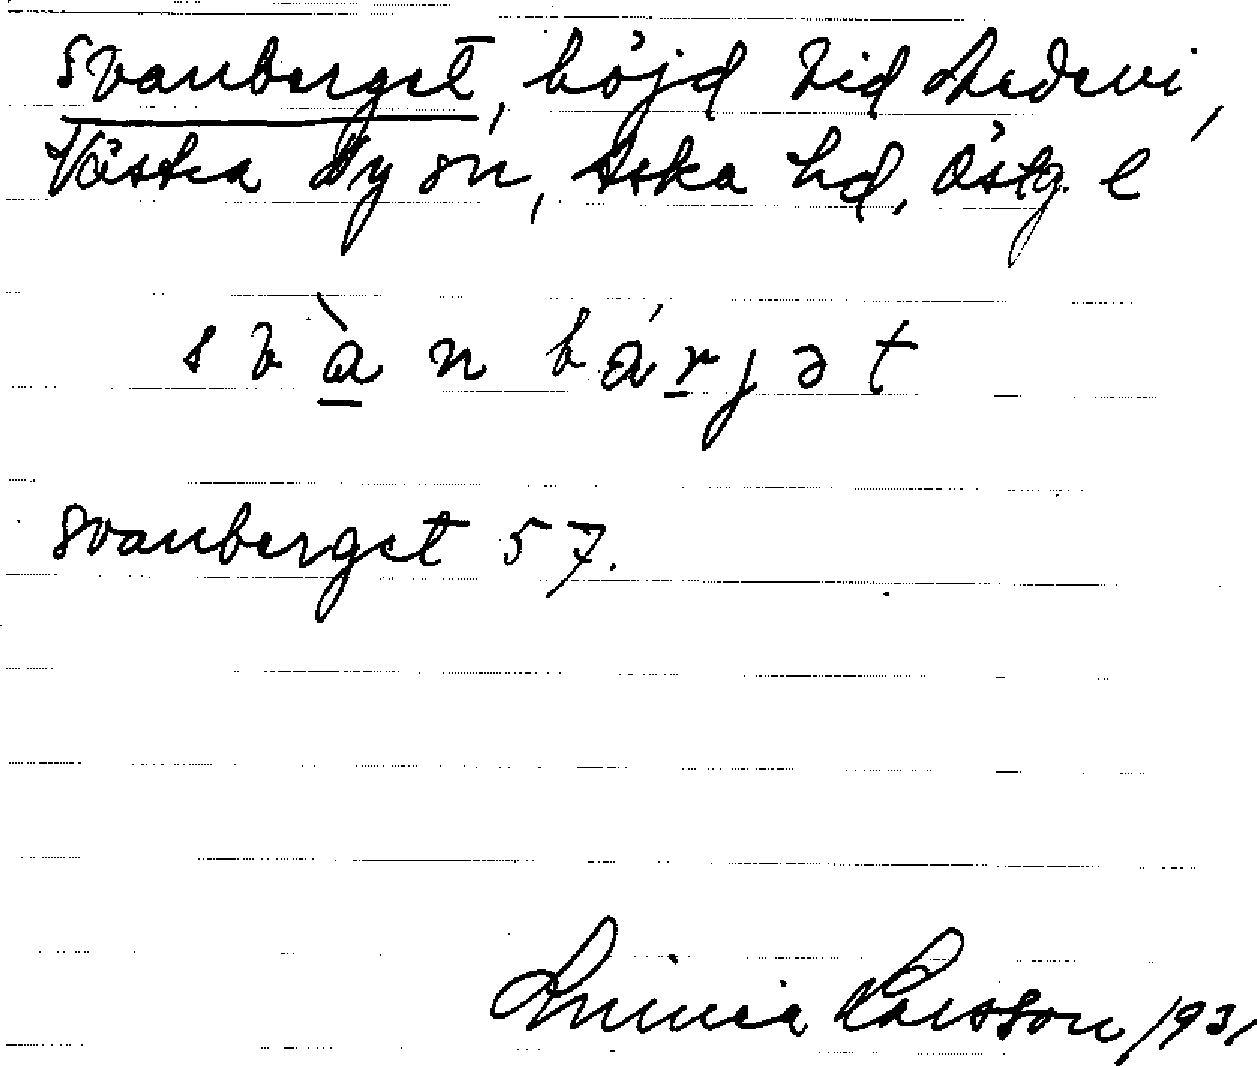 Svanberget, höjd vid Medevi,
Västra Ny sn, Aska hd, Östg. l
svànbárjət
Svanberget 57.
Linnéa Larsson /931